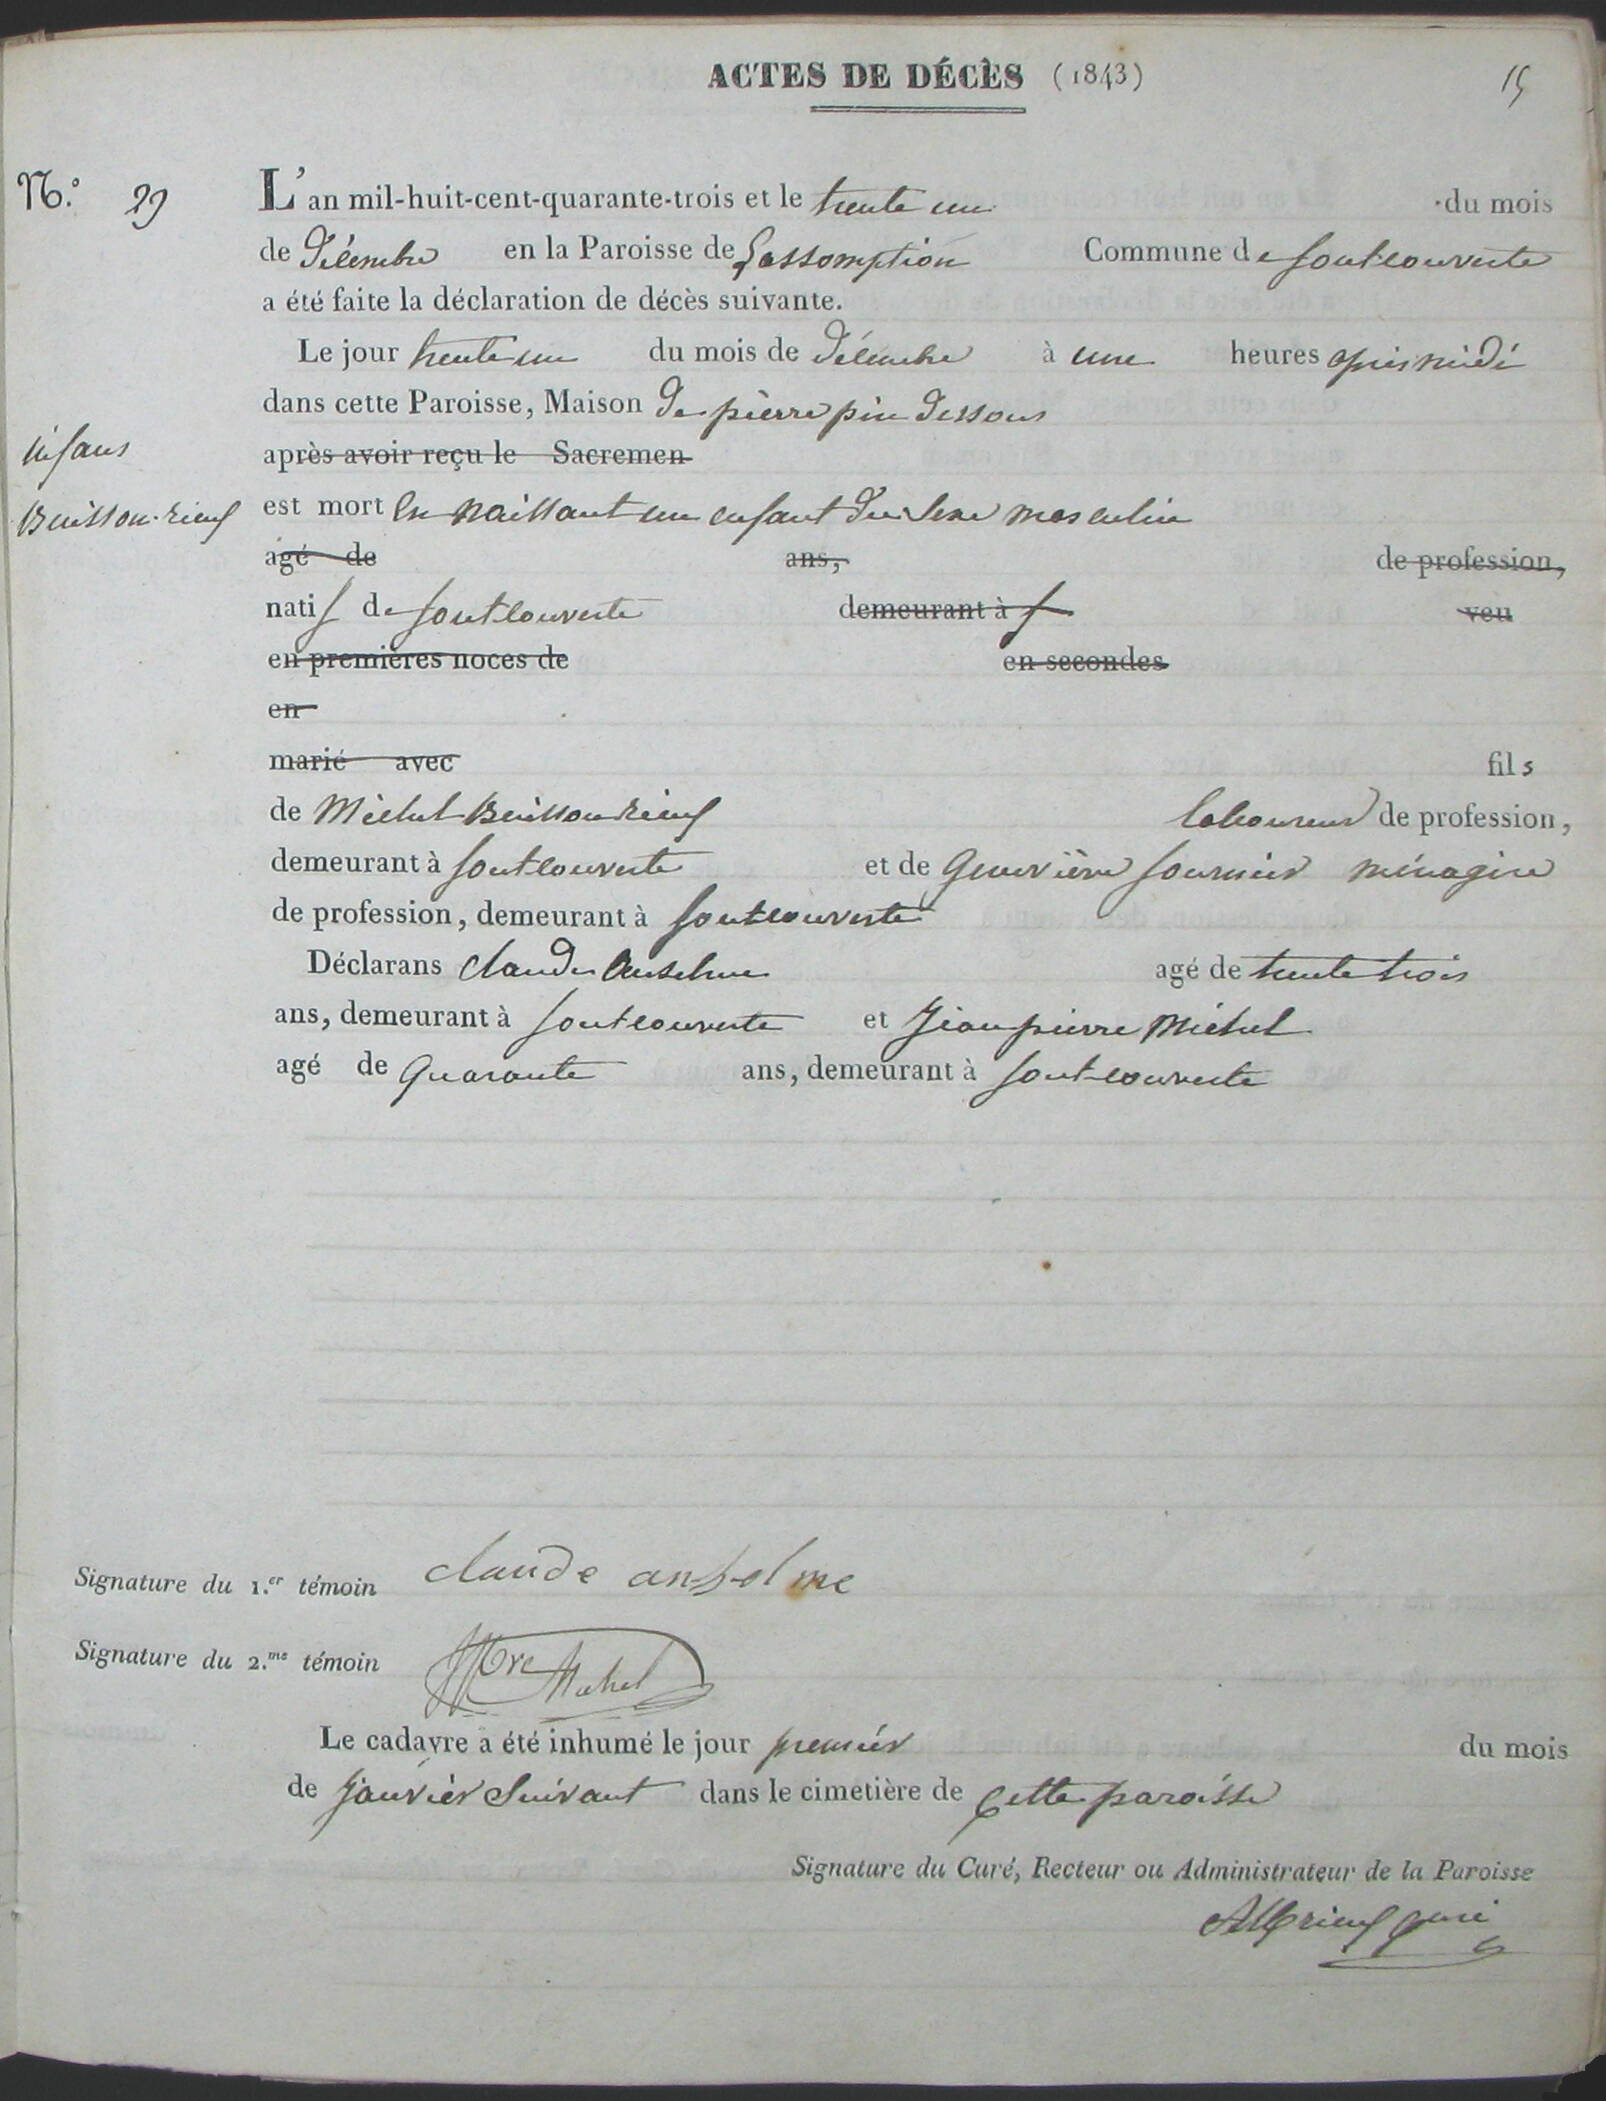 ACTES DE DÉCÈS (1843) 15
N.° 29 L'an mil-huit-cent-quarante-trois et le trente un du mois
de décembre en la Paroisse de Lassomption Commune de fontcouverte
a été faite la déclaration de décès suivante.
Le jour trente un du mois de décembre à une heures après midi
dans cette Paroisse, Maison de pierre pin dessous
infans
après avoir reçu le Sacremen
Buisson-rieuf
est mort en naissant un enfant du sexe masculin
agé de ans, de profession,
natif de fontcouverte demeurant à veu
en premières noces de en secondes
en
marié avec fils
de Michel Buisson rieuf laboureur de profession,
demeurant à fontcouverte et de Genevière fournier ménagère
de profession, demeurant à fontcouverte
Déclarans claude Anselme agé de trente trois
ans, demeurant à fontcouverte et Jean pierre Michel
agé de quarante ans, demeurant à fontcouverte
Signature du 1.er témoin claude anselme
Signature du 2.me témoin Jn Pre Michel
Le cadavre a été inhumé le jour premier du mois
de janvier suivant dans le cimetière de cette paroisse
Signature du Curé, Recteur ou Administrateur de la Paroisse
curé